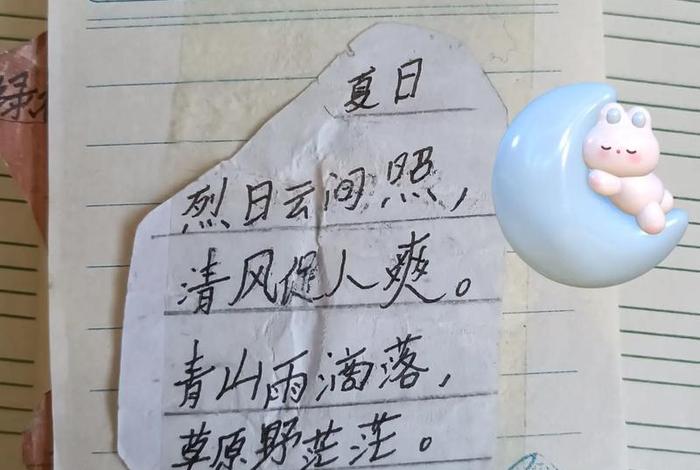 夏日
烈日云间照，
清风促人爽。
青山雨滴落，
草原野茫茫。
绿